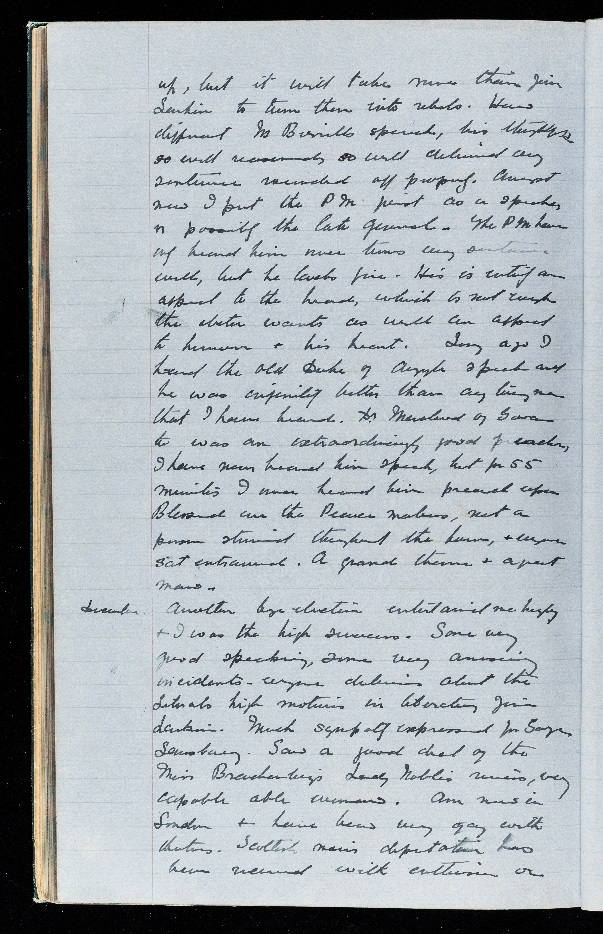 up, but it will take more than Jim
Larkin to turn them into rebels. How
different Mr Birrells speech, his thoughts
so well reasoned, so well delivered any
sentence rounded off properly. Amongst
men I put the P.M. first as a speaker
or possibly the late general. The P.M. have
only heard him once
well, but he lacks fire. His is entirely an
appeal to the head, which is not enough
the elector wants as well an appeal
to humour & his heart. Long ago I
heard the old Duke of Argyle speak and
he was infinitely better than anyone
that I have heard. Dr Macleod of Govan
to was an extraordinarily good preacher,
I have never heard him speak, but for 55
minutes I once heard him preach upon
Blessed are the Peace makers, not a
person stirred throughout the hour, & everyone
sat entranced. A grand theme & a great
man.
December. Another bye-election entertained me hugely
& I was the high success. Some very
good speaking, some very amusing
incidents - everyone delirious about the
Liberals high motives in liberating Jim
Larkin. Much sympathy expressed for George
Lansbury. Saw a good deal of the
Miss Brackenburys Lady Nobles nieces, very
capable able women. Am now in
London & have been very gay with
Scottish mens deputation has
been received with enthusiasm